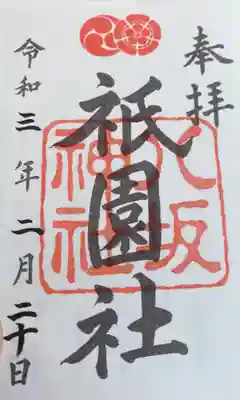 奉拝
祇園社
八坂神社
令和三年二月二十日